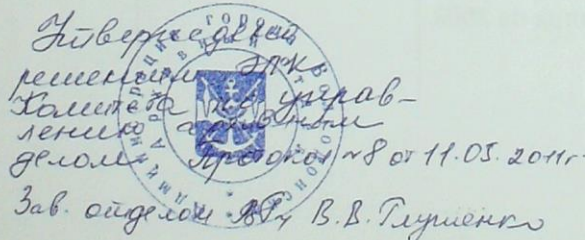 Утвержденой
решением ЭПК
Комитета по управ-
лению архивным
делом. Протокол №8 от 11.03.2011г.
Зав. отделом В.В. Глущенко